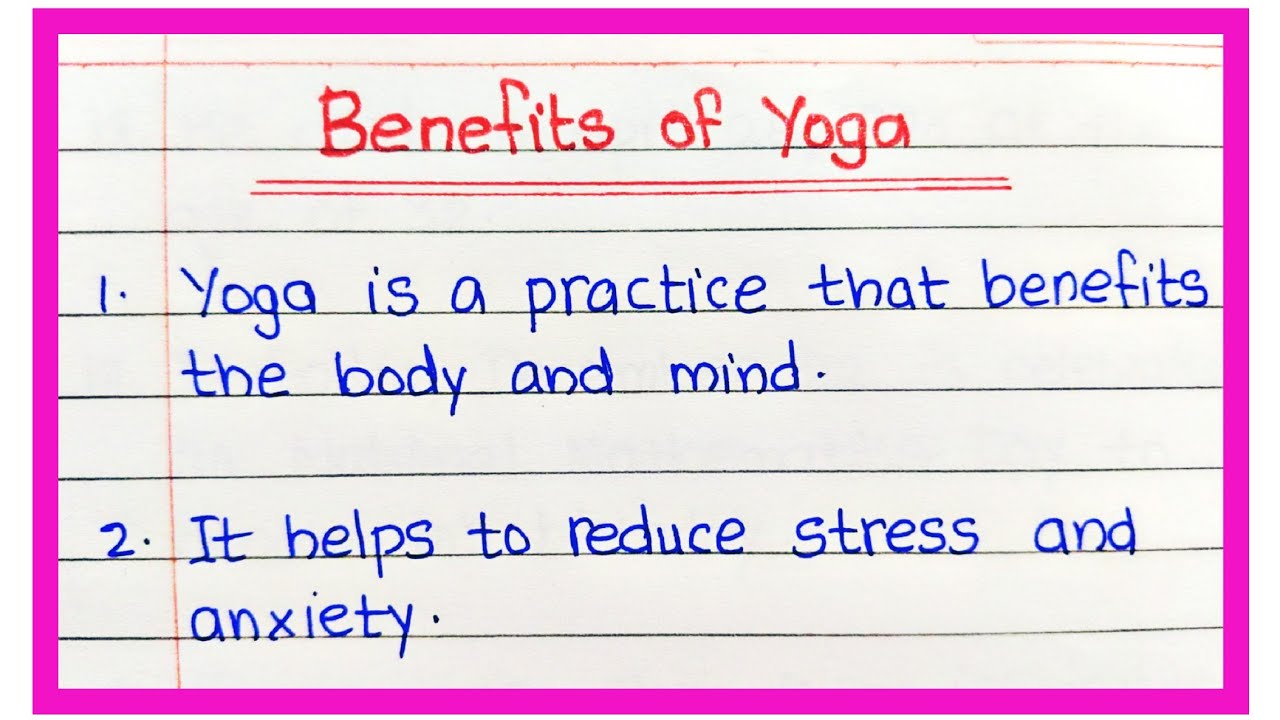 Benefits of Yoga
1. Yoga is a practice that benefits
the body and mind.
2. It helps to reduce stress and
anxiety.